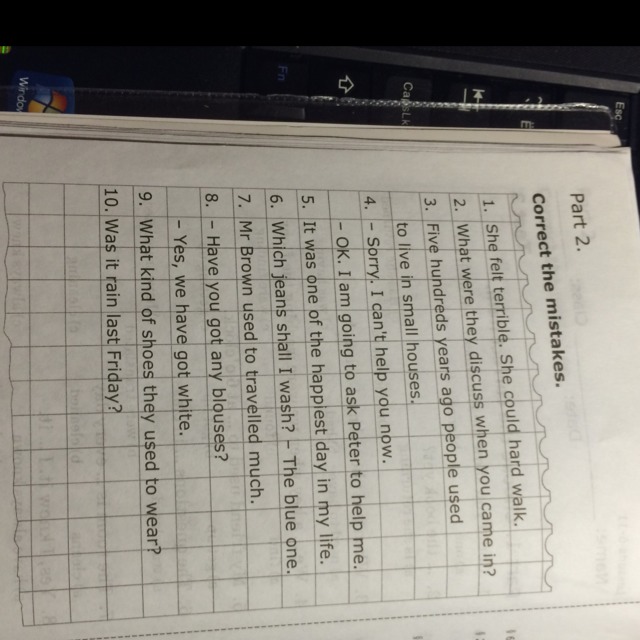 Part 2.
Correct the mistakes.
1. She felt terrible. She could hard walk.
2. What were they discuss when you came in?
3. Five hundreds years ago people used
to live in small houses.
4. – Sorry. I can't help you now.
– OK. I am going to ask Peter to help me.
5. It was one of the happiest day in my life.
6. Which jeans shall I wash? – The blue one.
7. Mr Brown used to travelled much.
8. – Have you got any blouses?
– Yes, we have got white.
9. What kind of shoes they used to wear?
10. Was it rain last Friday?
Esc
Fn
Windo